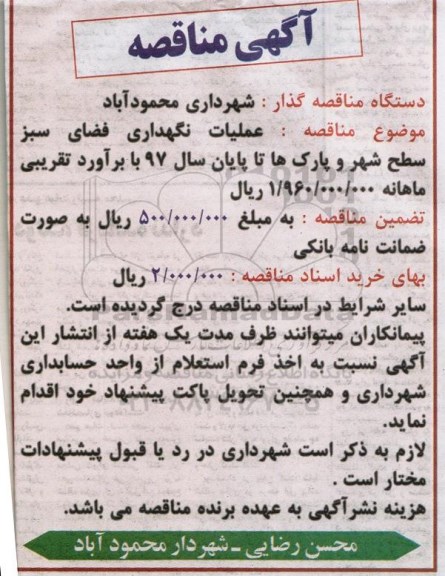 آگهی مناقصه
دستگاه مناقصه گذار : شهرداری محمودآباد
موضوع مناقصه : عملیات نگهداری فضای سبز
سطح شهر و پارک ها تا پایان سال ۹۷ با برآورد تقریبی
ماهانه ۱/۹۶۰/۰۰۰/۰۰۰ ریال
تضمین مناقصه : به مبلغ ۵۰۰/۰۰۰/۰۰۰ ریال به صورت
ضمانت نامه بانکی
بهای خرید اسناد مناقصه : ۲/۰۰۰/۰۰۰ ریال
سایر شرایط در اسناد مناقصه درج گردیده است.
پیمانکاران میتوانند ظرف مدت یک هفته از انتشار این
آگهی نسبت به اخذ فرم استعلام از واحد حسابداری
شهرداری و همچنین تحویل پاکت پیشنهاد خود اقدام
نماید.
لازم به ذکر است شهرداری در رد یا قبول پیشنهادات
مختار است .
هزینه نشرآگهی به عهده برنده مناقصه می باشد.
محسن رضایی ـ شهردار محمود آباد